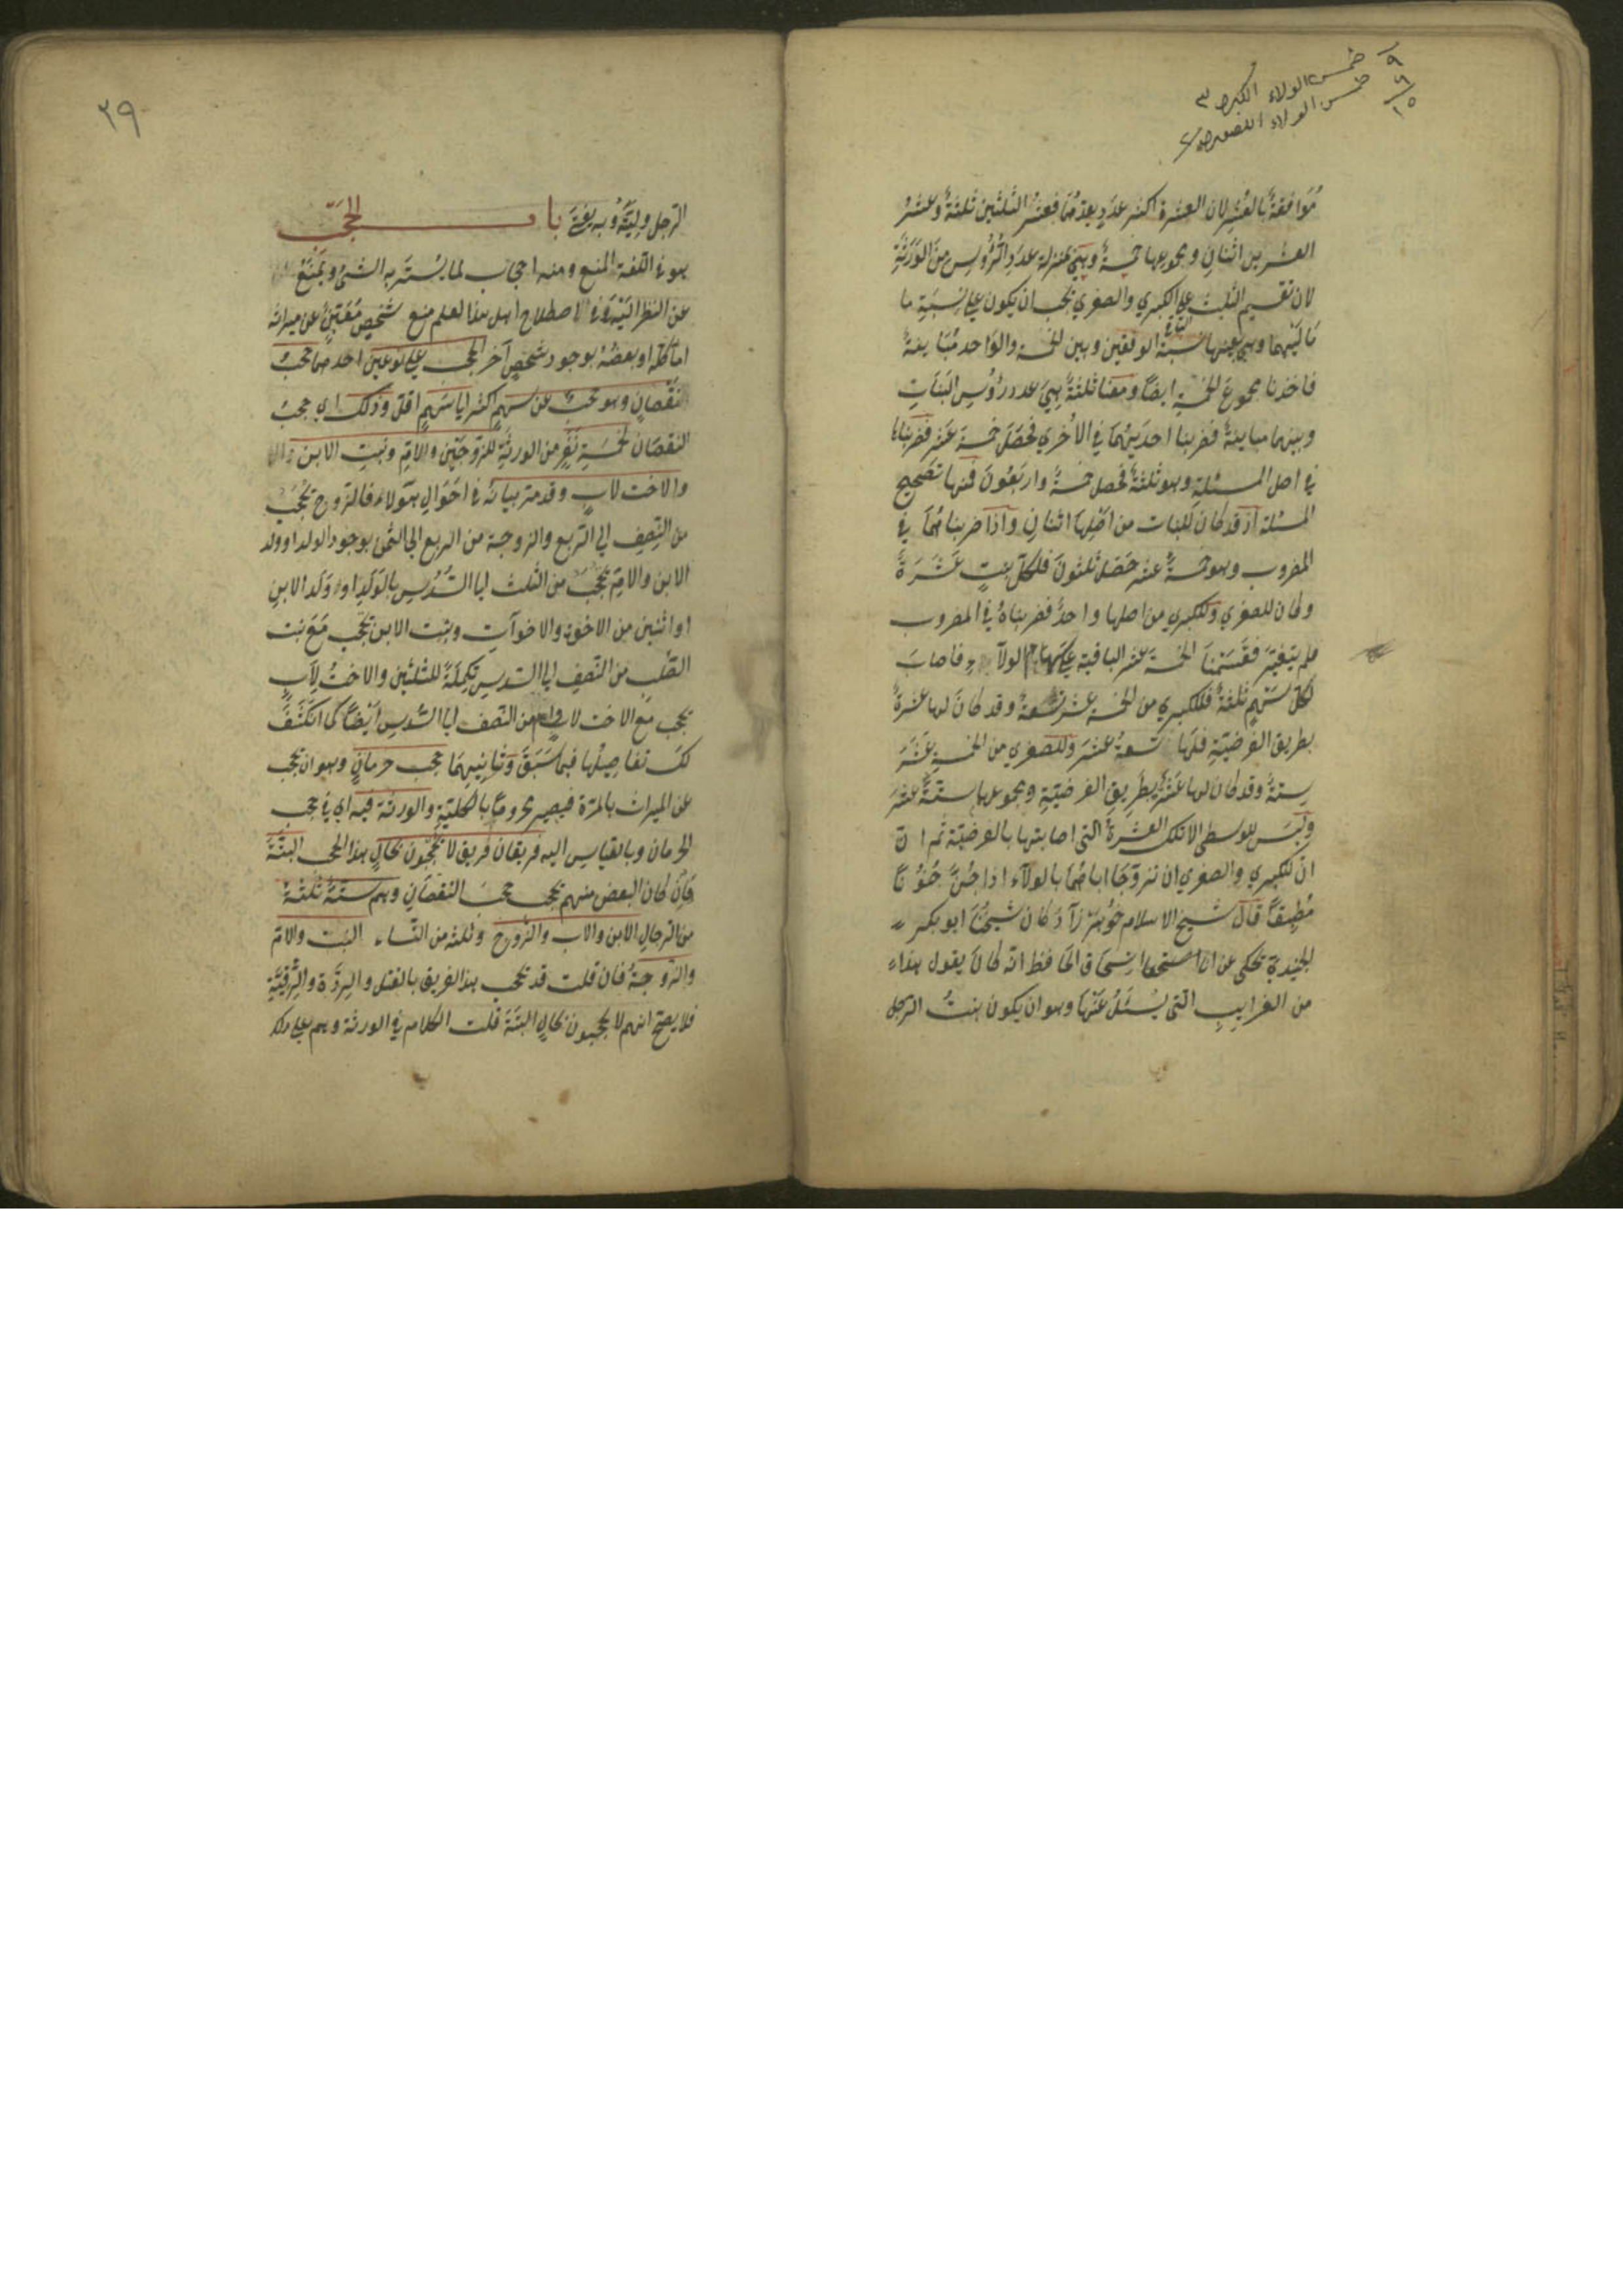 خمس الولاء الكبرى ٣
خمس الولاء الصغرى
٩
٦
١٥
موافقة بالعشر لان العشرة اكثر عدد يعدهما فعشر الثلثين ثلثة وعشر
العشرين اثنان ومجموعها خمسة وهي بمنزلة عدد الرؤس من الورثة
لان تقسيم الثلث على الكبرى والصغرى يجب ان يكون على نسبة ما
ماليهما وهي بعينها نسبة الوفقين وبين الخمسة والواحد مباينة
فاخذنا مجموع الخمسة ايضا ومعنا ثلثة هي عدد رؤس البنات
وبينهما مباينة فضربنا احديهما في الاخرى فحصل خمسة عشر فضربناها
في اصل المسئلة وهو ثلثة فحصل خمسة واربعون فمنها تصحيح
المسئلة اذ قد كان للبنات من اصلها اثنان واذا ضربناهما في
المضروب وهو خمسة عشر حصل ثلثون فلكل بنت عشرة
وكان للصغرى وللكبرى من اصلها واحد فضربناه في المضروب
فلم يتغير فقسمنا الخمسة عشر الباقية على سهام الولاء فاصاب
لكل سهم ثلثة فللكبرى من الخمسة عشر تسعة وقد كان لها عشرة
بطريق الفرضية فلها تسعة عشر وللصغرى من الخمسة عشر
ستة وقد كان لها عشرة بطريق الفرضية ومجموعها ستة عشر
وليس للوسطى الا تلك العشرة التى اصابتها بالفرضية ثم ان
ان للكبرى والصغرى ان تزوجا اباهما بالولاء اذا جن جنونا
مطبقا قال شيخ الاسلام خواهر زاده كان شيخنا ابو بكر
يحكى عن اسحاق الحافظ انه كان يقول هذا
من الغرايب التى يسئل عنها وهو ان يكون بنت الرجل
٢٩
الرجل وليته وبه يفتى باب الحجب
هو في اللغة المنع ومنه الحجاب لما يستر به الشئ ويمنع
عن النظر اليه وفي اصطلاح اهل هذا العلم منع شخص معين عن ميراثه
اما كله او بعضه بوجود شخص آخر الحجب على نوعين احدهما حجب
نقصان وهو حجب عن سهم اكثر الى سهم اقل وذلك اى حجب
النقصان لخمسة نفر من الورثة للزوجين والام وبنت الابن
والاخت لاب وقد مر بيانه في احوال هؤلاء فالزوج يحجب
من النصف الى الربع والزوجة من الربع الى الثمن بوجود الولد او ولد
الابن والام تحجب من الثلث الى السدس بالولد او ولد الابن
او اثنين من الاخوة والاخوات وبنت الابن تحجب مع بنت
الصلب من النصف الى السدس تكملة للثلثين والاخت لاب
تحجب مع الاخت لاب وام من النصف الى السدس ايضا كما انكشف
لك تفاصيلها فيما سبق وثانيهما حجب حرمان وهو ان يحجب
عن الميراث بالمرة فيصير محروما بالكلية والورثة فيه اى في حجب
الحرمان وبالقياس اليه فريقان فريق لا يحجبون بحال هذا الحجب البتة
وان كان البعض منهم يحجب حجب النقصان وهم ستة ثلثة
من الرجال الابن والاب والزوج وثلثة من النساء البنت والام
والزوجة فان قلت قد يحجب هذا الفريق بالقتل والردة والرقية
فلا يصح انهم لا يحجبون بحال البتة قلت الكلام في الورثة وهم على